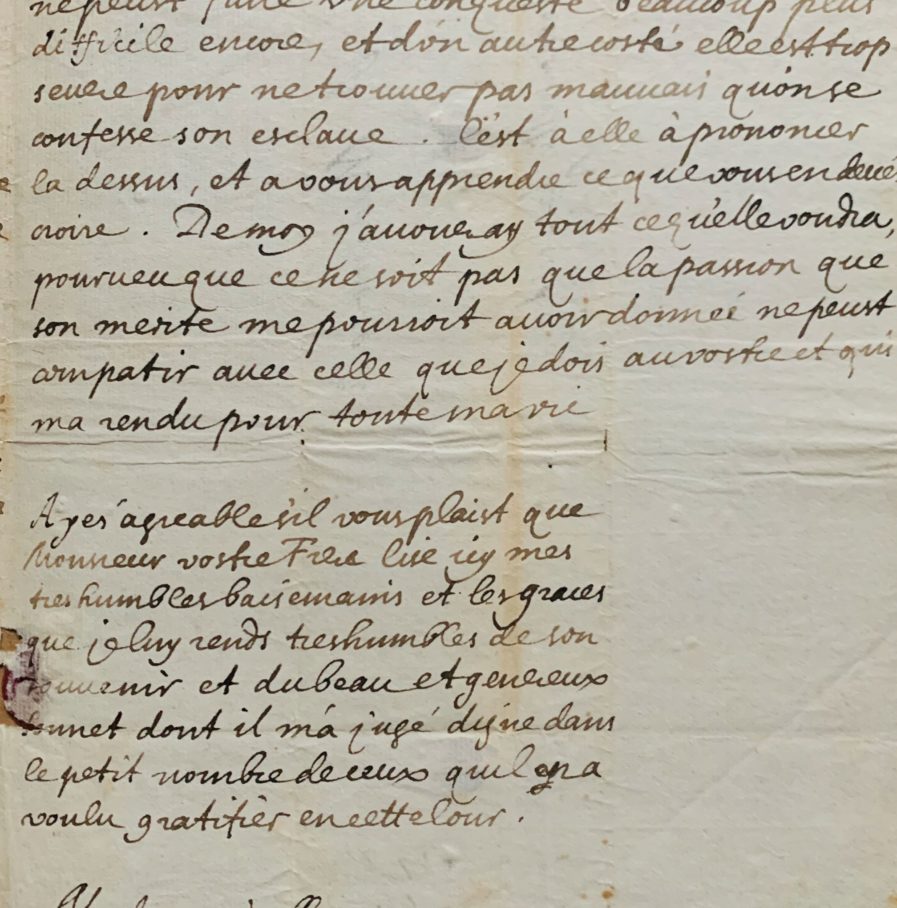 ne peust faire vne conqueste beaucoup plus
difficile encore, et d'vn autre costé elle est trop
seuere pour ne trouuer pas mauuais qu'on se
confesse son esclaue. C'est à elle à prononcer
la dessus, et a vous apprendre ce que vous en deués
croire. De moy j'auoueray tout ce qu'elle voudra,
pourueu que ce ne soit pas que la passion que
son merite me pourroit auoir donneé ne peust
compatir auec celle que je dois au vostre et qui
ma rendu pour toute ma vie
Ayes agreable s'il vous plaist que
Monsieur vostre Frere lise icy mes
tres humbles baisemains et les graces
que je luy rends tres humbles de son
souuenir et du beau et genereux
sonnet dont il m'a jugé digne dans
le petit nombre de ceux qu'il en a
voulu gratifier en cette Cour.